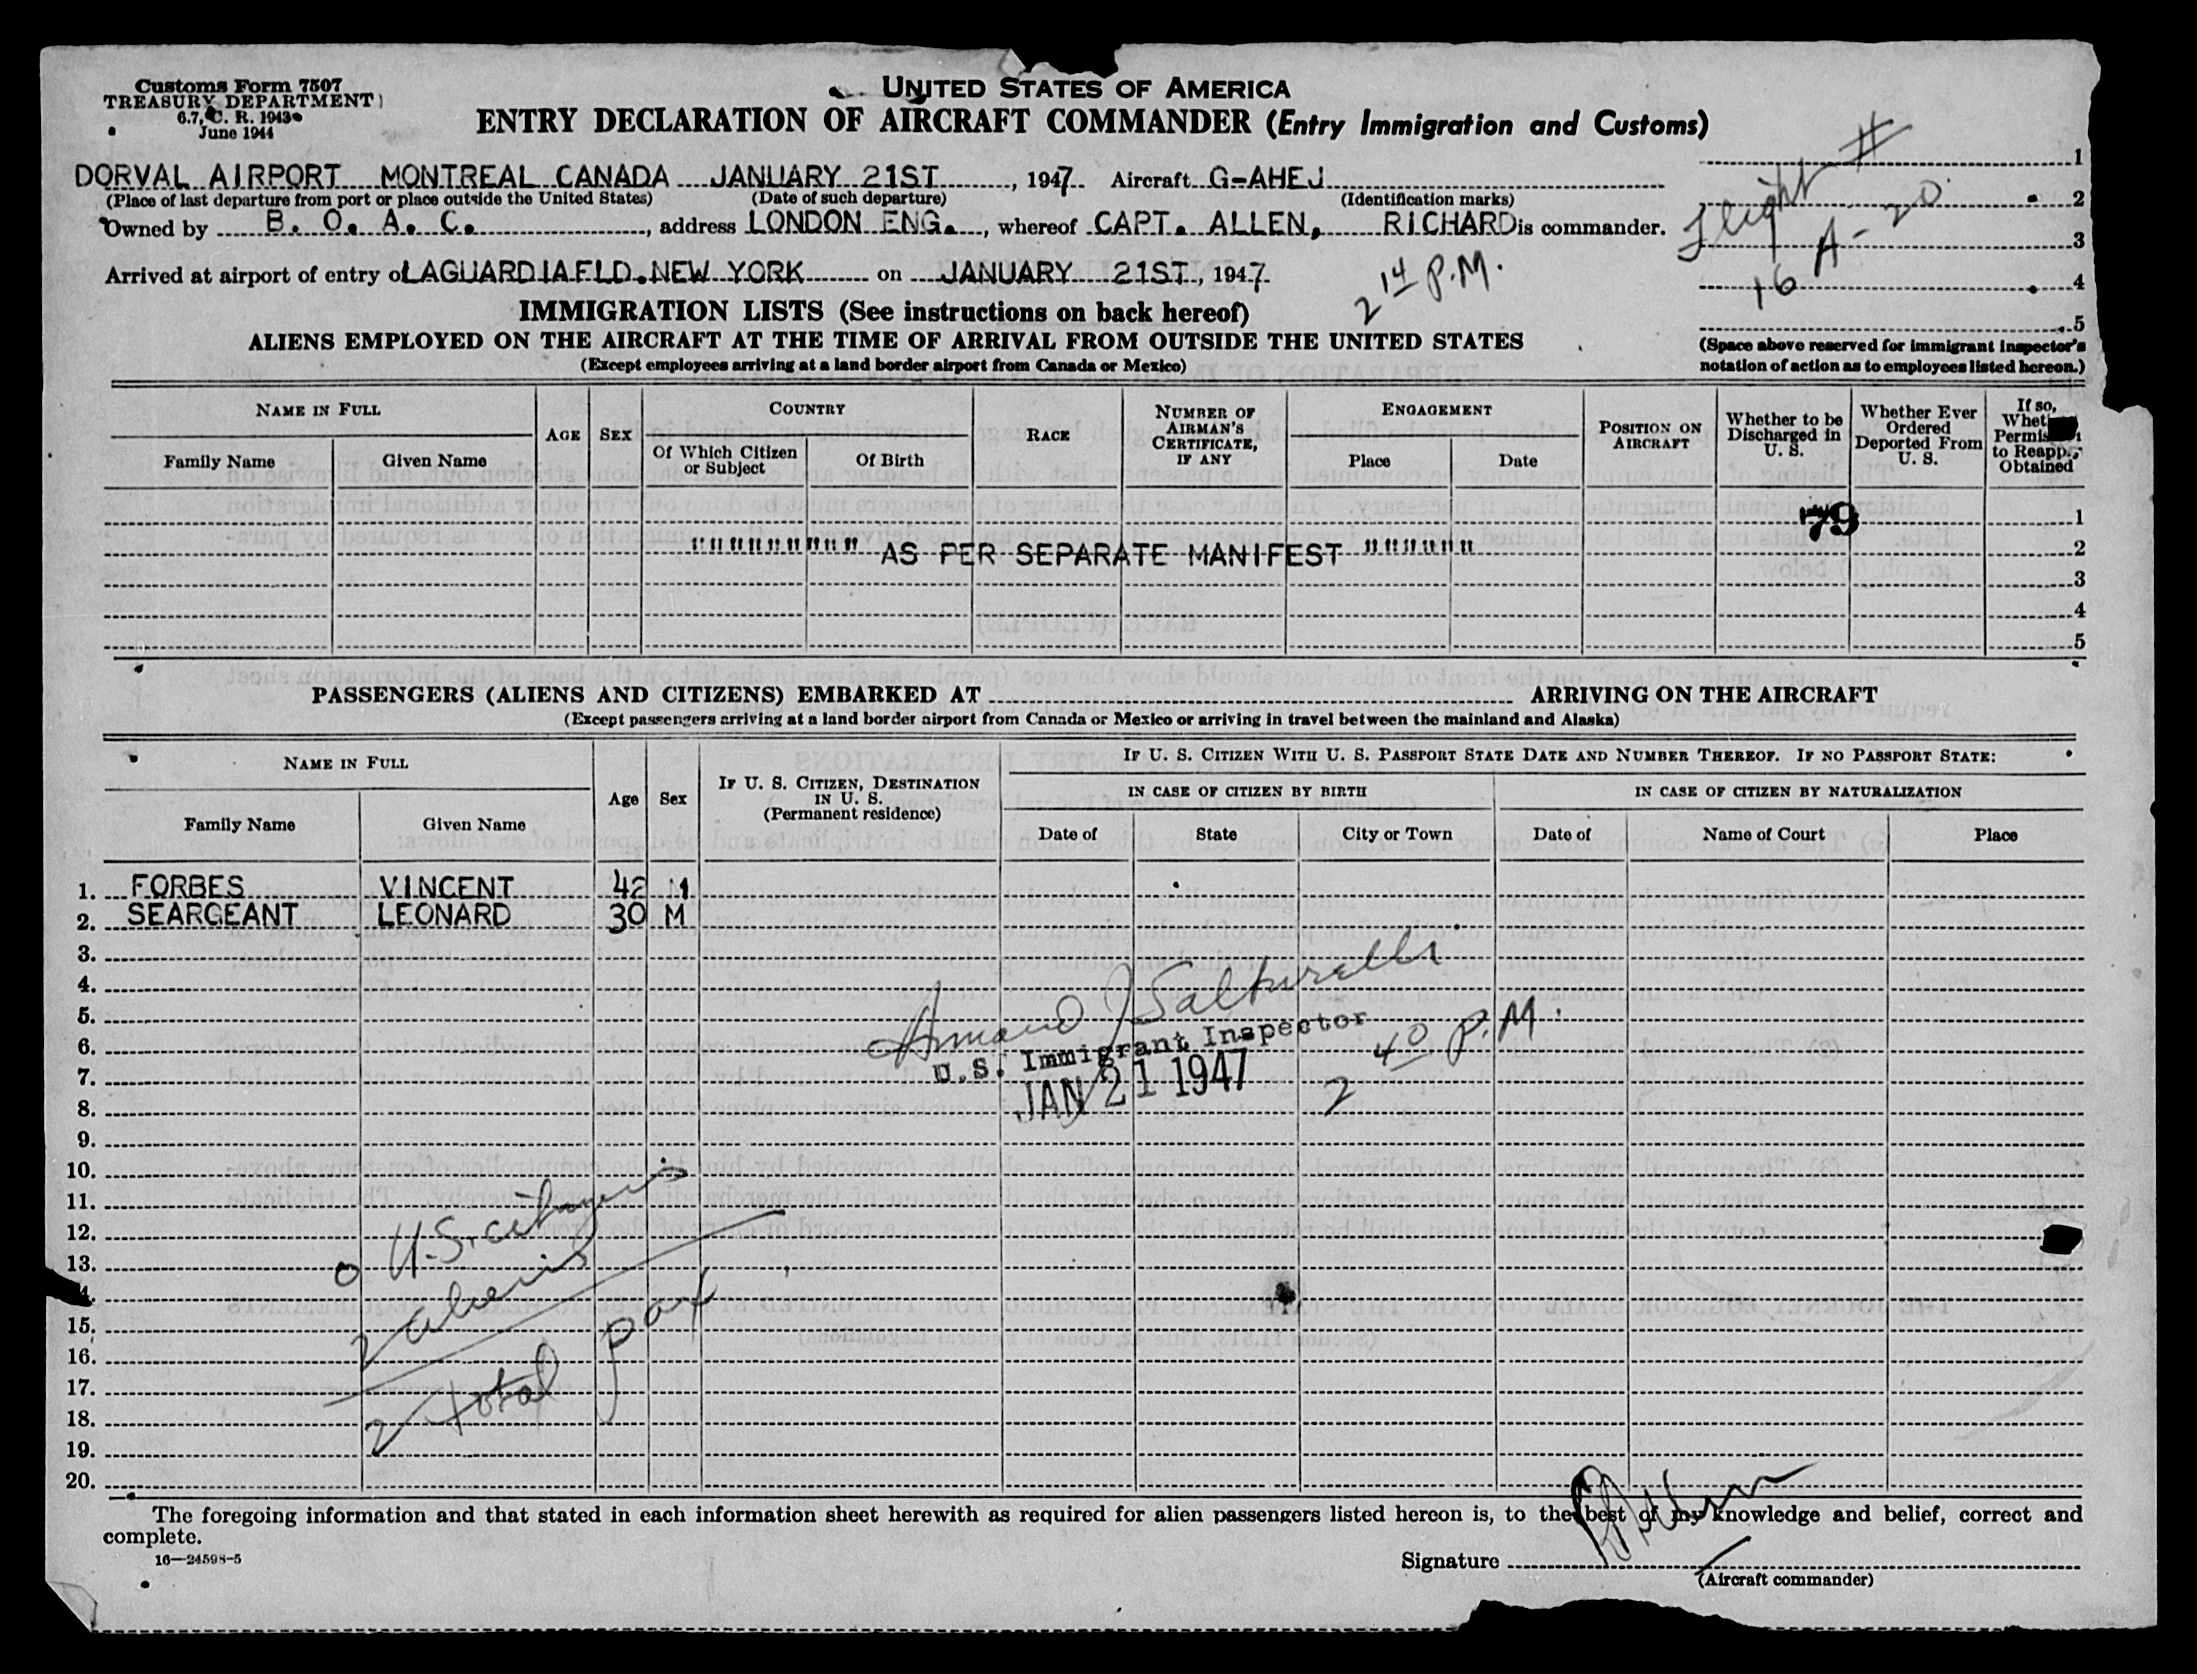 Customs Form 7507
TREASURY DEPARTMENT
6.7, C. R. 1943
June 1944
UNITED STATES OF AMERICA
ENTRY DECLARATION OF AIRCRAFT COMMANDER (Entry Immigration and Customs)
DORVAL AIRPORT MONTREAL CANADA JANUARY 21ST, 1947. Aircraft G-AHEJ
(Place of last departure from port or place outside the United States) (Date of such departure) (Identification marks)
Owned by B. O. A. C., address LONDON ENG., whereof CAPT. ALLEN, RICHARD is commander.
Arrived at airport of entry of LAGUARDIA FLD. NEW YORK on JANUARY 21ST, 1947.
2 14 P.M.
Flight #
16 A-20
1
2
3
4
5
(Space above reserved for immigrant inspector's
notation of action as to employees listed hereon.)
IMMIGRATION LISTS (See instructions on back hereof)
ALIENS EMPLOYED ON THE AIRCRAFT AT THE TIME OF ARRIVAL FROM OUTSIDE THE UNITED STATES
(Except employees arriving at a land border airport from Canada or Mexico)
NAME IN FULL
Family Name
Given Name
AGE
SEX
COUNTRY
Of Which Citizen
or Subject
Of Birth
RACE
NUMBER OF
AIRMAN'S
CERTIFICATE,
IF ANY
ENGAGEMENT
Place
Date
POSITION ON
AIRCRAFT
Whether to be
Discharged in
U. S.
Whether Ever
Ordered
Deported From
U. S.
If so,
to Reapp
Obtained
79
1
""""""""" AS PER SEPARATE MANIFEST """"""
2
3
4
5
PASSENGERS (ALIENS AND CITIZENS) EMBARKED AT ARRIVING ON THE AIRCRAFT
(Except passengers arriving at a land border airport from Canada or Mexico or arriving in travel between the mainland and Alaska)
NAME IN FULL
Family Name
Given Name
Age
Sex
IF U. S. CITIZEN, DESTINATION
IN U. S.
(Permanent residence)
IF U. S. CITIZEN WITH U. S. PASSPORT STATE DATE AND NUMBER THEREOF. IF NO PASSPORT STATE:
IN CASE OF CITIZEN BY BIRTH
Date of
State
City or Town
IN CASE OF CITIZEN BY NATURALIZATION
Date of
Name of Court
Place
1. FORBES VINCENT 42 M
2. SEARGEANT LEONARD 30 M
3.
4.
5.
6.
7.
8.
9.
10.
11.
12.
13.
15.
16.
17.
18.
19.
20.
Armand J Salturelli
U.S. Immigrant Inspector
JAN 21 1947
2 40 P.M.
0 U.S. citizens
2 aliens
2 total pax
The foregoing information and that stated in each information sheet herewith as required for alien passengers listed hereon is, to the best of my knowledge and belief, correct and
complete.
16—24598-5
Signature
(Aircraft commander)